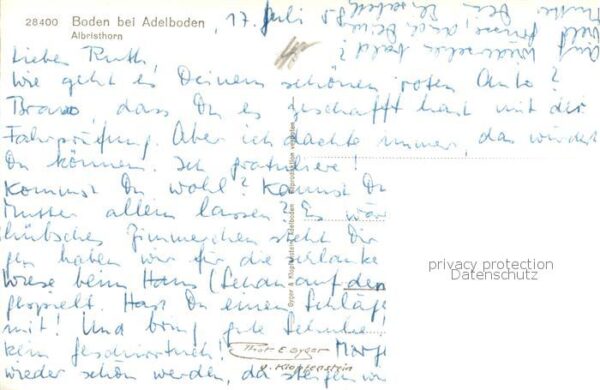 28400 Boden bei Adelboden
Albristhorn
17. Juli 58
Liebes Ruth,
wie geht es Deinem schönen roten Auto?
Bravo, dass Du es geschafft hast mit der
Fahrprüfung. Aber ich dachte immer, das würdest
Du können. Ich gratuliere!
Kommst Du wohl? Kannst Du
Mutter allein lassen? Es wär
hübsches Zimmerchen steht Dir
gen haben wir für die schlanke
Wiese beim Haus (Schau auf der
gespielt. Hast Du einen Schläge
mit! Und bring gute Schuhe
kein Morge
wieder schön werden, da steigen wi
Auf Wiedersehn bald?
Gyger & Klopfenstein Adelboden
Phot E Gyger
A. Klopfenstein
privacy protection
Datenschutz